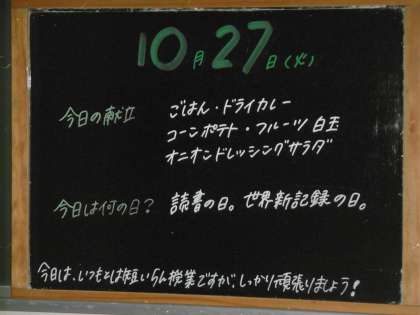 10月27日(火)
今日の献立 ごはん・ドライカレー
コーンポテト・フルーツ白玉
オニオンドレッシングサラダ
今日は何の日? 読書の日。世界新記録の日。
今日は、いつもとは短いらん授業ですが、しっかり頑張りましょう!